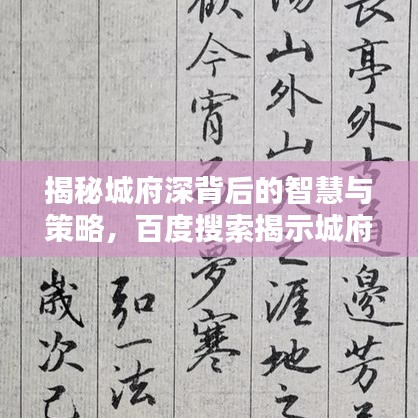 揭秘城府深背后的智慧与
策略，百度搜索揭示城府
亭外古邊芳
山外山之涯地之
今宵夢寒
弘一法
歲次己